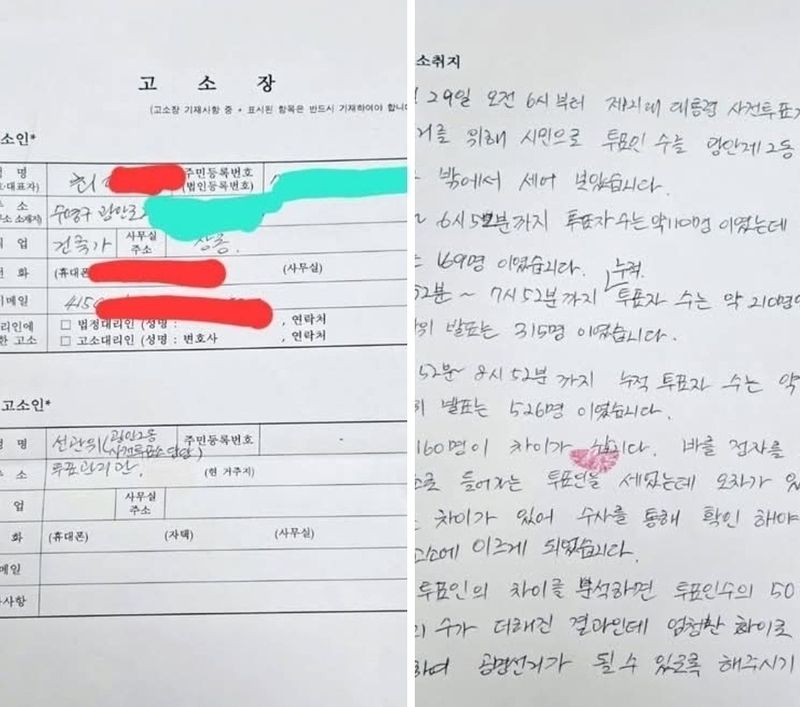 고 소 장
(고소장 기재사항 중 * 표시된 항목은 반드시 기재하여야 합니
소인*
명
·대표자)
주민등록번호
(법인등록번호)
소
소 소재지)
수영구 광안로
업
건축가
사무실
주소
상동
화
(휴대폰
(사무실)
이메일
415
리인에
한 고소
□ 법정대리인 (성명 : , 연락처
□ 고소대리인 (성명 : 변호사 , 연락처
고소인*
명
선관위(광안2동
사전투표소 담당)
주민등록번호
-
소
투표관리관.
(현 거주지)
업
사무실
주소
화
(휴대폰) (자택) (사무실)
메일
사항
소취지
29일 오전 6시부터 제21대 대통령 사전투표
를 위해 시민으로 투표인 수를 광안제2동
밖에서 세어 보았습니다.
6시52분까지 투표자수는 약110명 이였는데
169명 이였습니다.
52분 ~ 7시52분까지 누적 투표자 수는 약 210명
의 발표는 315명 이였습니다.
52분~ 8시52분 까지 누적 투표자 수는 약
발표는 526명 이였습니다.
160명이 차이가 납니다. 바를 정자를
로 들어가는 투표인을 세었는데 오차가 있
차이가 있어 수사를 통해 확인 해야
고소에 이르게 되었습니다.
투표인의 차이를 분석하면 투표인수의 50
수가 더해진 결과인데 엄청난 차이로
하여 공명선거가 될 수 있도록 해주시기